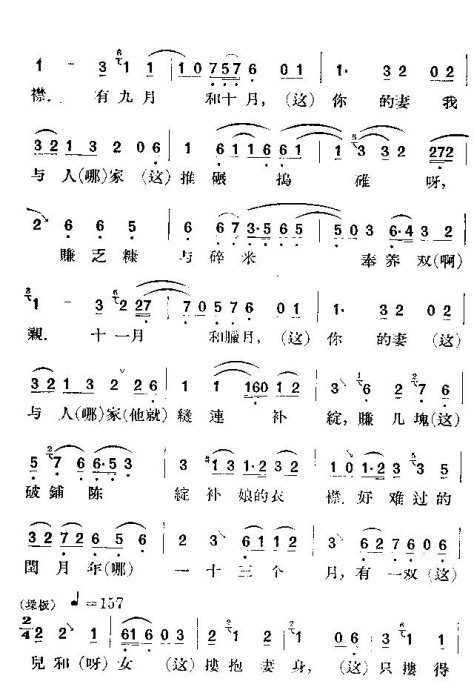 1 - 3 1 1 1 0 7 5 7 6 0 1 1· 3 2 0 2
襟. 有九月 和十月,(这)你 的妻我
3 2 1 3 2 0 6 1 6 1 1 6 1 1 3 3 2 2 7 2
与 人(哪)家 (这)推 碾 捣 碓 呀,
2 6 6 5 6 7 3·5 6 5 5 0 3 6·4 3 2
赚 乏 糠 与 碎 米 奉 养 双(啊)
1 - 3 2 2 7 7 0 5 7 6 0 1 1· 3 2 0 2
親. 十一月 和臘月,(这)你 的妻(这)
3 2 1 3 2 2 6 1 1 1 6 0 1 2 3 6 2 7 6
与 人(哪)家(他就) 缝 連 补 綻,賺 几 塊(这)
5 7 6 6·5 3 3 1 3 1·2 3 2 1 0 1·2 3 3 5
破 鋪 陈 綻 补 娘的 衣 襟.好 难过 的
3 2 7 2 6 5 6 2 3 3 0 2 3 2 3 6 2 7 6 0 6
閏 月 年(哪) 一 十 三 个 月,有 一双(这)
(垛板) ♩=157
2/4 2 2 1 6 1 6 0 3 2 1 2 1 0 6 3 1 2
兒 和(呀) 女 (这)摟 抱 妻 身,(这)只 摟 得